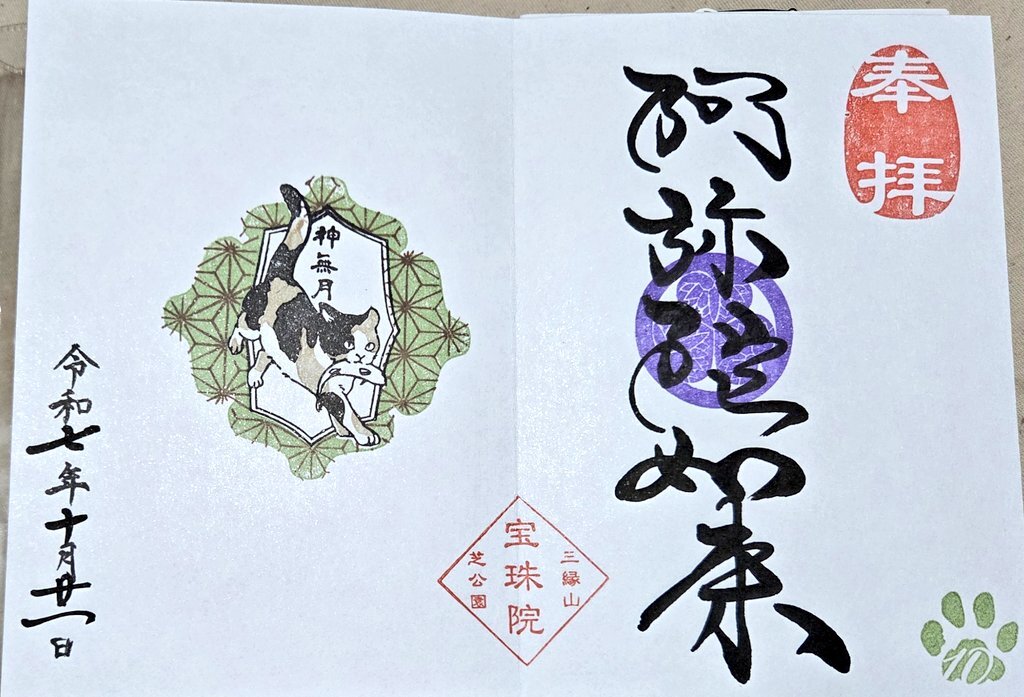 奉拝
阿弥陀如来
三縁山
宝珠院
芝公園
神無月
令和七年十月廿一日
10